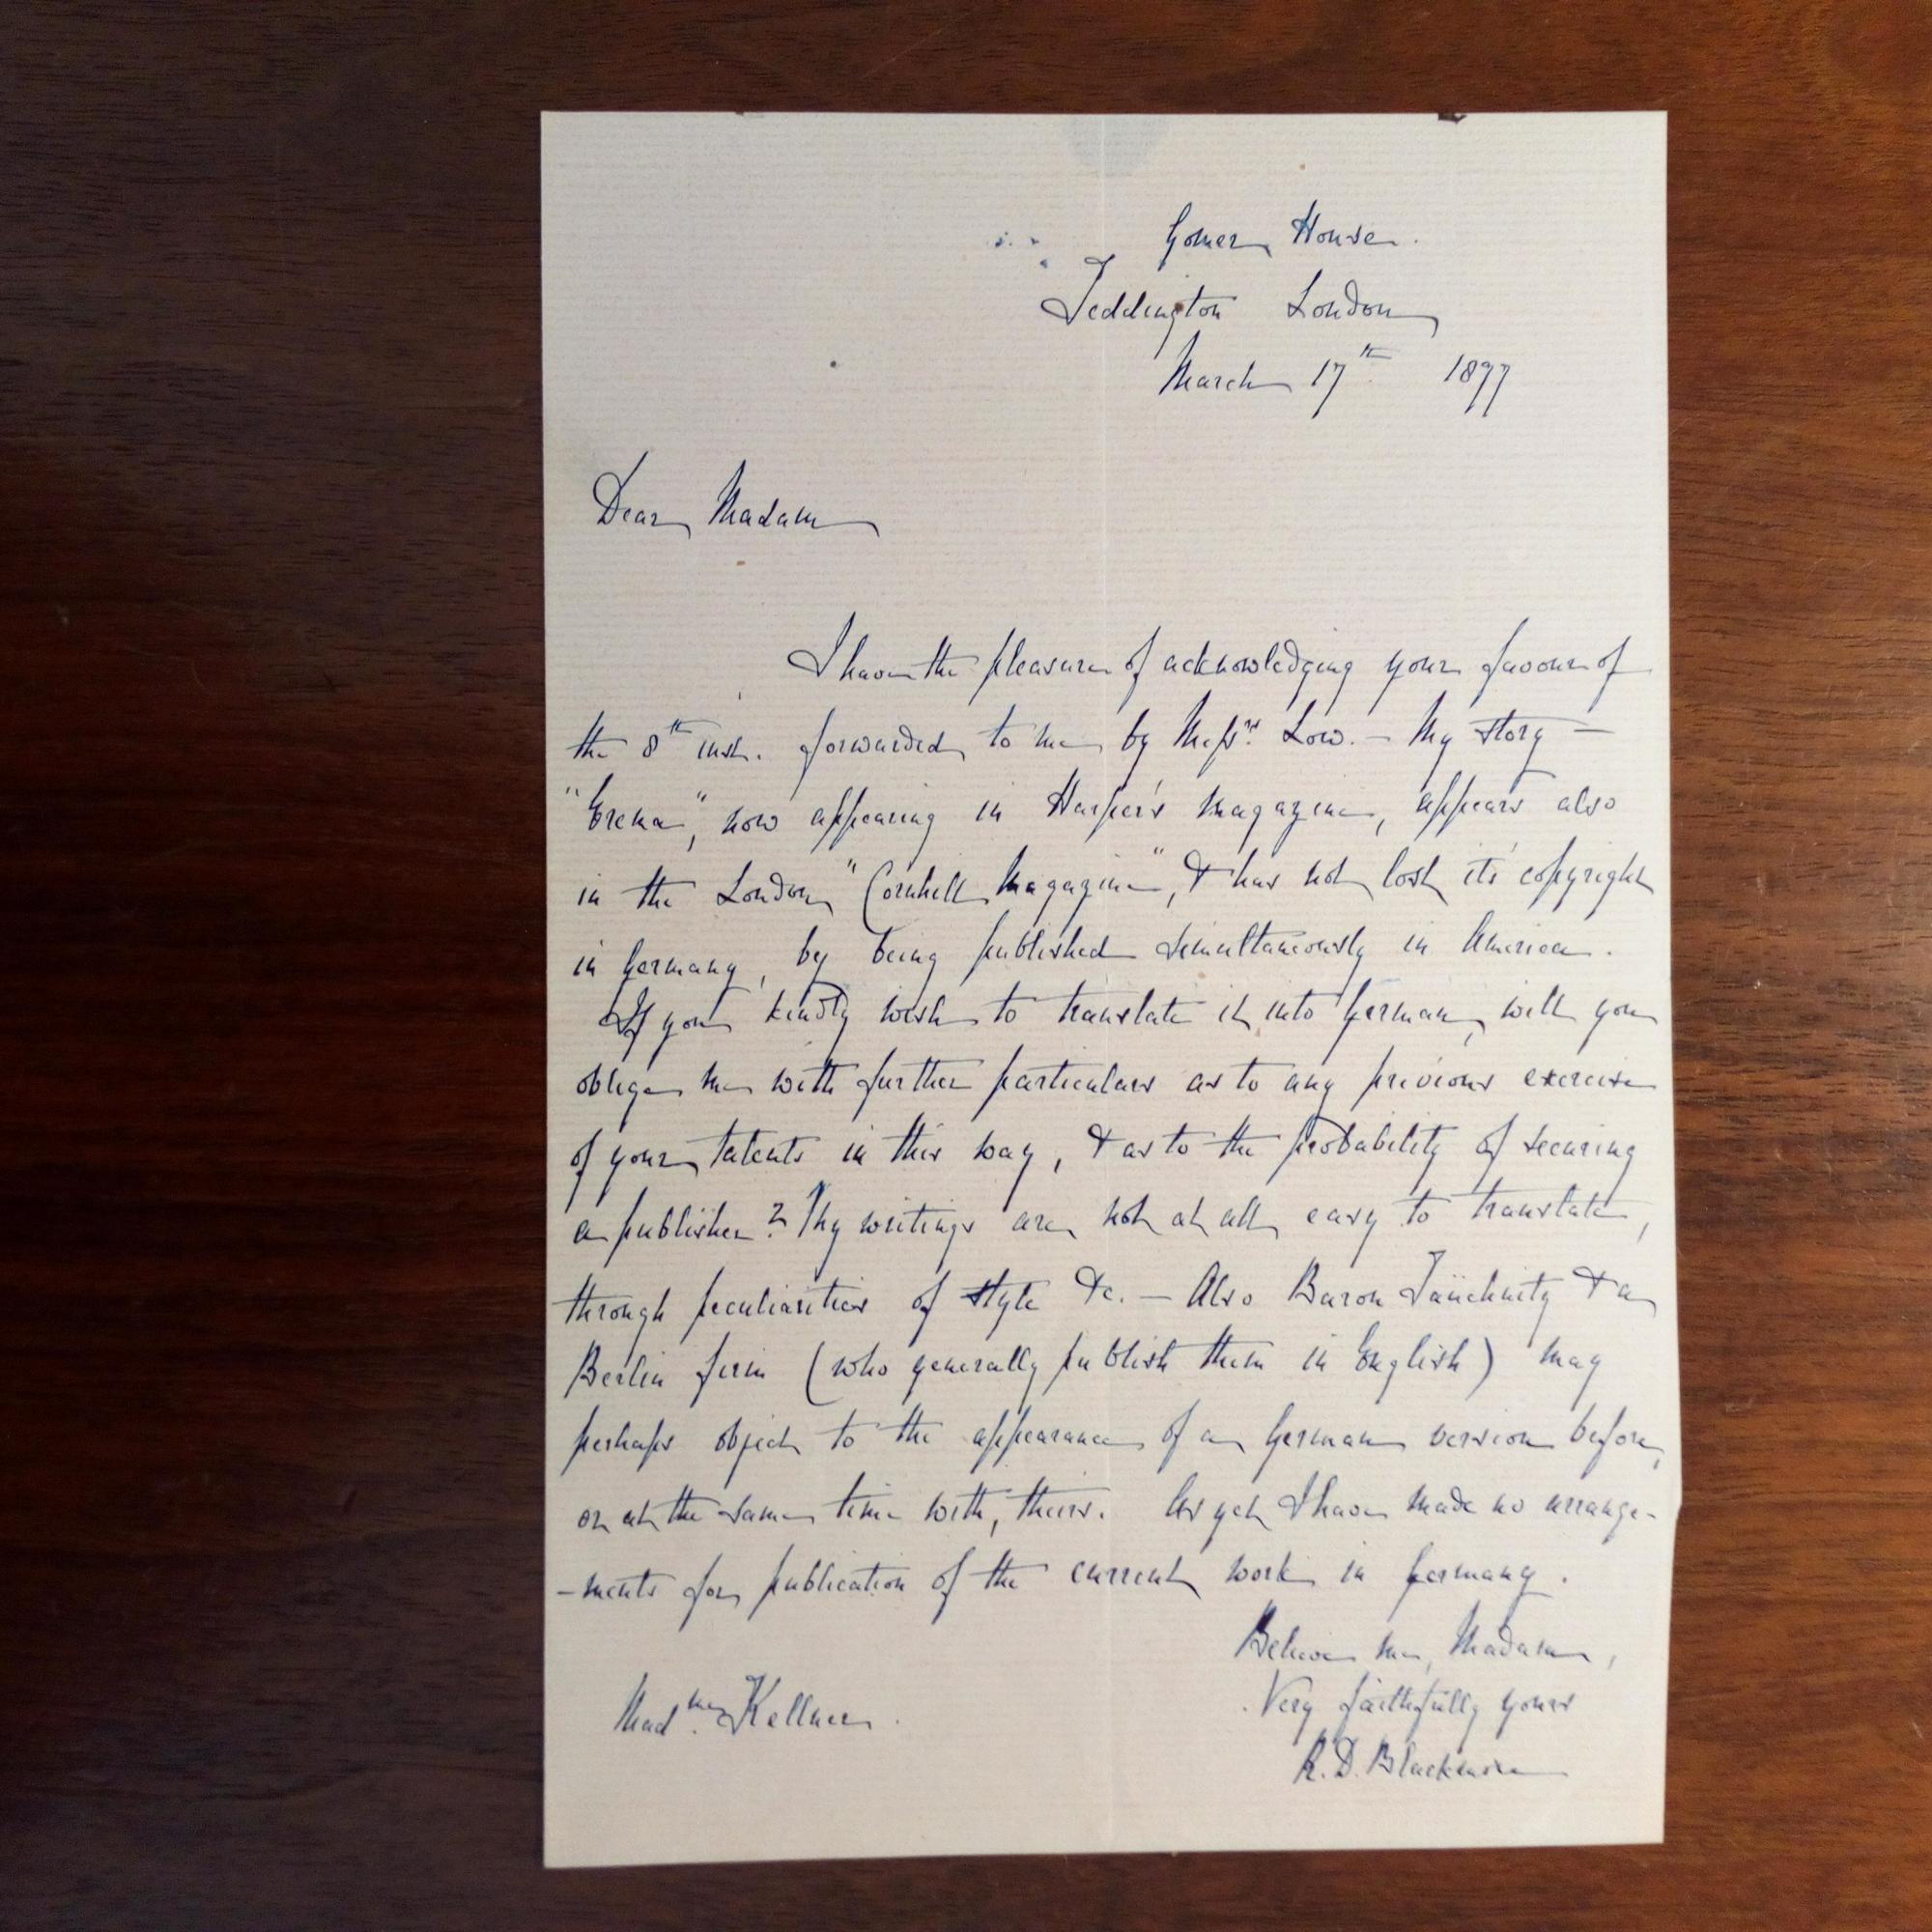 Gomer House.
Teddington London
March 17th 1877
Dear Madam
I have the pleasure of acknowledging your favour of
the 8th inst. forwarded to me by Messrs. Low. — My story —
"Erema", now appearing in Harper's Magazine, appears also
in the London "Cornhill Magazine", & has not lost it's copyright
in Germany, by being published simultaneously in America.
If you kindly wish to translate it into German, will you
oblige me with further particulars as to any previous exercise
of your talents in this way, & as to the probability of securing
a publisher? My writings are not at all easy to translate,
through peculiarities of style &c. — Also Baron Taüchnitz & a
Berlin firm (who generally publish them in English) may
perhaps object to the appearance of a German version before,
or at the same time with, theirs. As yet I have made no arrange-
-ments for publication of the current work in Germany.
Believe me, Madam,
Very faithfully yours
R. D. Blackmore
Madme. Kellner.